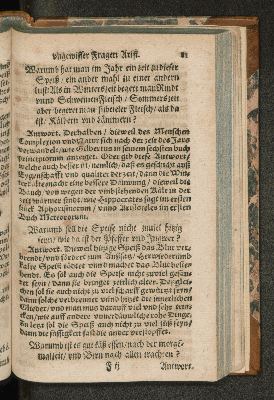 vngewisser Fragen Arist. 81
Warumb hat man im Jahr ein zeit zu dieser
Speiß / ein ander mahl zu einer andern
lust? Als in Winterszeit begert man Rindt
vnnd Schweinen Fleisch / Sommerszeit
aber begert man subteler Fleisch / als da
ist / Kälbern vnd Lämmern?
Antwort. Derhalben / dieweil des Menschen
Complexion vnd Natur sich nach der zeit des Jars
verwandelt / wie Gilbertus in seinem sechsten buch
principiorum anzeigt. Oder gib diese Antwort /
welche auch besser ist / nemlich / daß es geschicht auß
Eygenschafft vnd qualitet der zeit / dann die Win-
ter kälte macht eine bessere Däuwung / dieweil die
Bäuch / von wegen der vmbstehenden Kälte in der
zeit wärmer sindt / wie Hippocrates sagt im ersten
stück Aphorismorum / vnnd Aristoteles im ersten
Buch Meteororum.
Warumb soll die Speise nicht zuuiel hitzig
seyn / wie da ist der Pfeffer vnd Ingwer?
Antwort. Dieweil hitzige Speiß das Blut ver-
brendt / vnd fördert zum Aussatz / Herwiederumb
kalte Speiß tödtet vnnd machet das Blut besste-
hendt. Es sol auch die Speise nicht zuuiel gesäu-
ret seyn / dann sie bringet zeitlich alter. Deßglei-
chen sol sie auch nicht zu viel scharff gewürtzt seyn /
dann solche verbrennet vnnd hitzet die innerlichen
Glieder / vnd man muß darauff viel vnd sehr trin-
cken / wie auff andere vnuerdäuwliche rohe Dinge.
Zu letzt sol die Speiß auch nicht zu viel süß seyn /
dann die süssigkeit fasset die ander verstopffung.
Warumb ist es gut käß essen / nach der morgē-
malzeit / vnd Birn nach allen trachten?
Antwort.